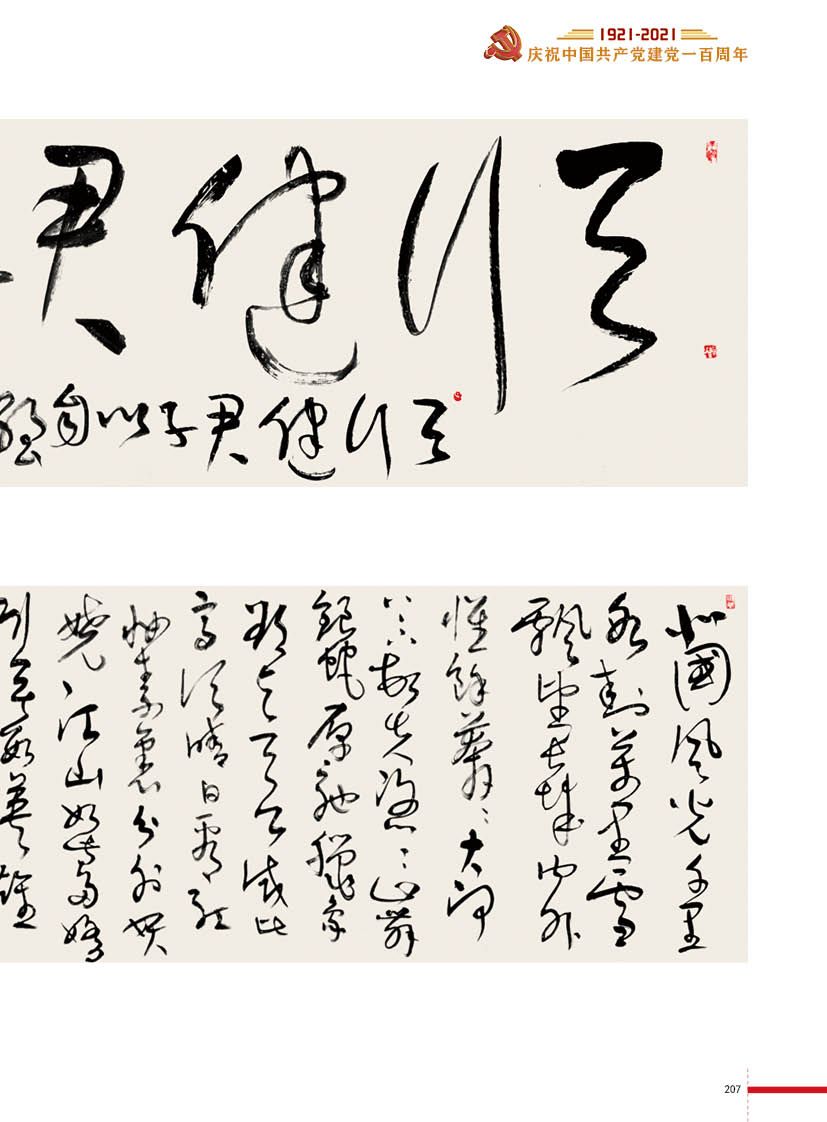 1921-2021
庆祝中国共产党建党一百周年
天行健君
天行健君子以自强
北国风光千里
冰封万里雪
飘望长城内外
惟余莽莽大河
上下顿失滔滔山舞
银蛇原驰蜡象
欲与天公试比
高须晴日看红
妆素裹分外妖
娆江山如此多娇
引无数英雄
207